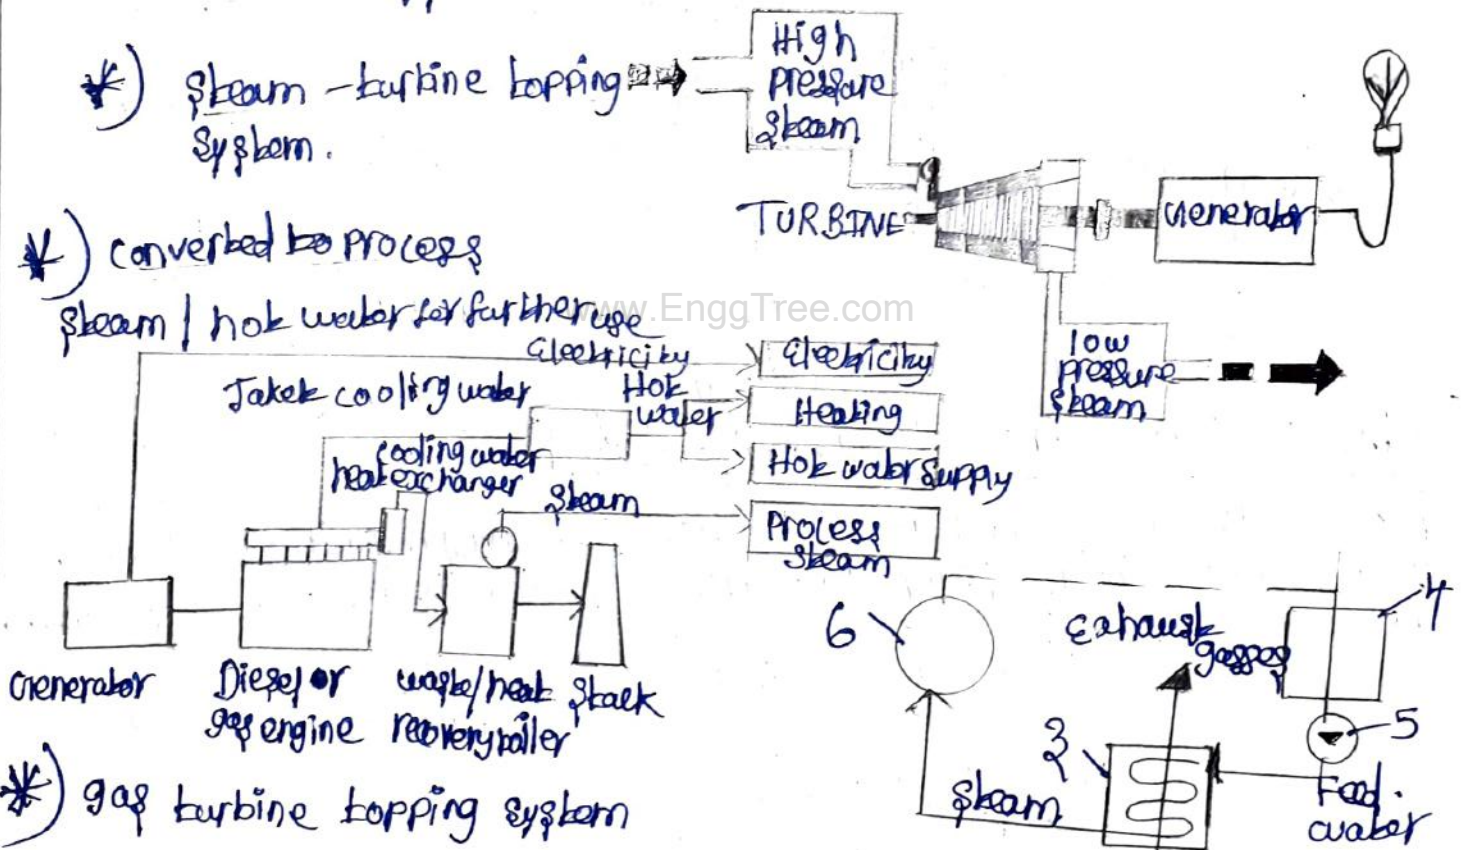 *) Steam - turbine topping
System.
High
pressure
steam
TURBINE
Generator
*) converted to process
steam / hot water for further use
www.EnggTree.com
low
pressure
steam
Electricity
Electricity
Jaket cooling water
Hot
water
Heating
cooling water
heat exchanger
Hot water Supply
steam
Process
steam
Generator
Diesel or
gas engine
waste/heat
recovery boiler
Stack
*) gas turbine topping system
6
Exhaust
gasses
4
5
3
steam
Feed.
water